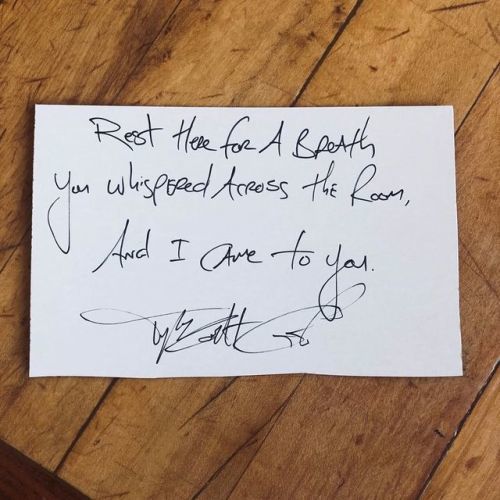 Rest Here for A Breath
you whispered Across the Room,
And I came to you.